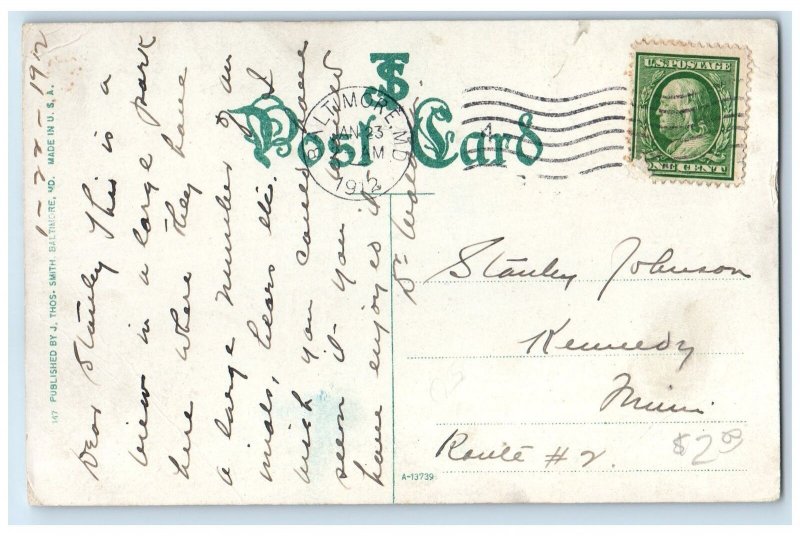 1-22-1912
Dear Stanley This is a
view in a large park
here where they have
a large number of an
imals, bears etc. I
wish you could have
seen it you would
have enjoyed it.
147 PUBLISHED BY J. THOS. SMITH, BALTIMORE, MD. MADE IN U. S. A.
TS
Post Card
BALTIMORE, MD.
JAN 23
AM
1912
U.S. POSTAGE
ONE CENT
Stanley Johnson
Kennedy
Minn
Route #2.
$2.00
A-13739